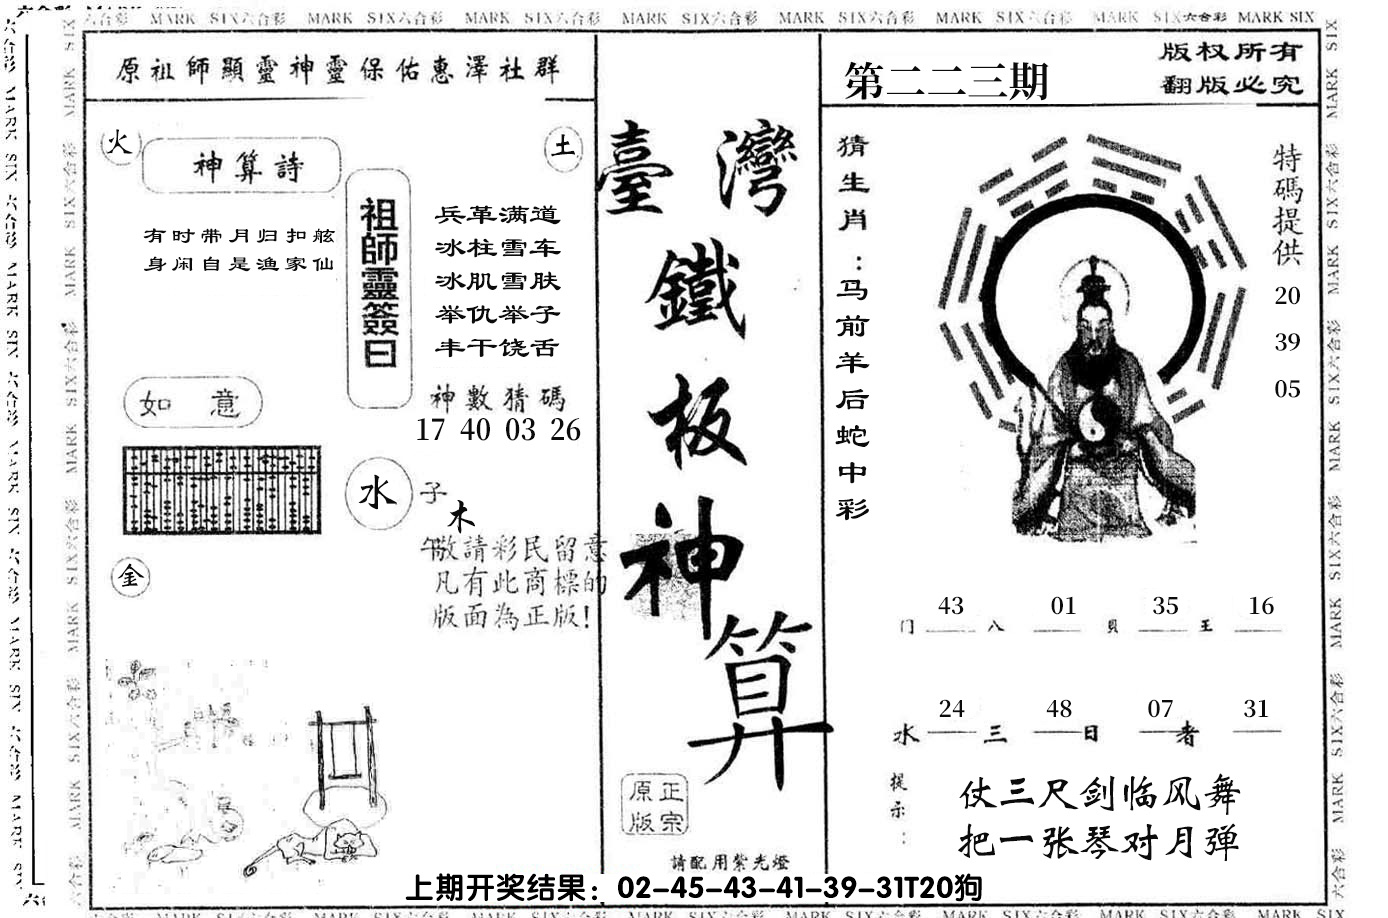 MARK SIX六合彩 MARK SIX六合彩 MARK SIX六合彩 MARK SIX六合彩 MARK SIX六合彩 MARK SIX六合彩 MARK SIX六合彩 MARK SIX
原祖師顯靈神靈保佑惠澤社群
火
土
神算詩
有时带月归扣舷
身闲自是渔家仙
祖師靈簽曰
兵革满道
冰柱雪车
冰肌雪肤
举仇举子
丰干饶舌
神數猜碼
17 40 03 26
如意
水
子
木
午
金
敬請彩民留意
凡有此商標的
版面為正版!
臺灣
鐵
板
神
算
正宗
原版
請配用紫光燈
第二二三期
版权所有
翻版必究
猜生肖:马前羊后蛇中彩
特碼提供
20
39
05
43 01 35 16
门 八 貝 王
24 48 07 31
水 三 日 者
提示:
仗三尺剑临风舞
把一张琴对月弹
上期开奖结果：02-45-43-41-39-31T20狗